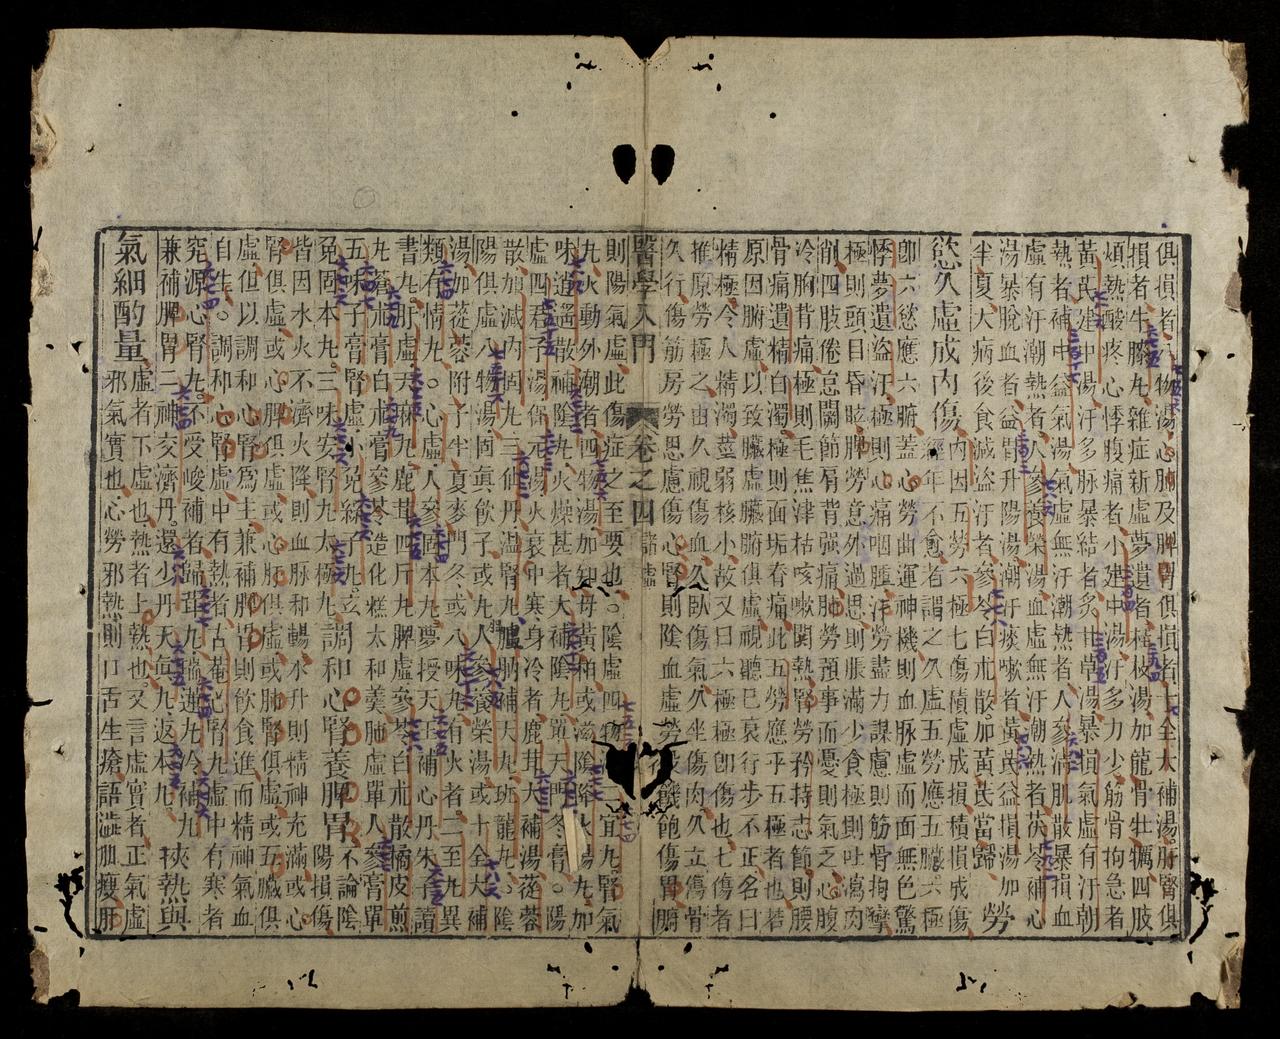 俱損者八物湯心肺及脾胃俱損者十全大補湯肝腎俱
損者牛膝丸雜症新虛夢遺者桂枝湯加龍骨牡蠣四肢
煩熱酸疼心悸腹痛者小建中湯汗多力少筋骨拘急者
黃芪建中湯汗多脉暴結者炙甘草湯暴損氣虛有汗朝
熱者補中益氣湯氣虛無汗潮熱者人參清肌散暴損血
虛有汗潮熱者人參養榮湯血虛無汗潮熱者茯苓補心
湯暴脫血者益胃升陽湯潮汗痰嗽者黃芪益損湯加
半夏大病後食減盜汗者參苓白朮散加黃芪當歸 勞
慾久虛成內傷 內因五勞六極七傷積虛成損積損成傷
經年不愈者謂之久虛五勞應五臟六極
卽六慾應六腑蓋心勞曲運神機則血脉虛而面無色驚
悸夢遺盜汗極則心痛咽腫汗勞盡力謀慮則筋骨拘攣
極則頭目昏眩脾勞意外過思則脹滿少食極則吐瀉肉
削四肢倦怠關節肩背强痛肺勞預事而憂則氣乏心腹
冷胸背痛極則毛焦津枯咳嗽閧熱腎勞矜持志節則腰
骨痛遺精白濁極則面垢脊痛此五勞應乎五極者也若
原因腑虛以致臟虛臟腑俱虛視聽已衰行步不正名曰
精極令人精濁莖弱核小故又曰六極極卽傷也七七
推原勞極之由久視傷血久臥傷氣久坐傷肉久立傷骨
久行傷筋房勞思慮傷心腎則陰血虛勞役飢飽傷胃腑
醫學入門 卷之四 諸虛
則陽氣虛此傷症之至要也陰虛四物二宜丸腎氣
九火動外潮者四物湯加知母黃柏或滋陰降火湯丸加
味逍遙散補陰丸火燥甚者大補陰丸單天門冬膏陽
虛四君子湯保元湯火衰中寒身冷者鹿茸大補湯蓯蓉
散加減內固丸三仙丹溫腎丸膃肭補天丸班龍丸陰
陽俱虛八物湯固眞飮子或九人參養榮湯或十全大補
湯加蓯蓉附子半夏麥門冬或八味丸有火者二至丸異
類有情丸心虛人參固本丸夢授天王補心丹朱子讀
書丸肝虛天麻丸鹿茸四斤丸脾虛參苓白朮散橘皮煎
九蒼朮膏白朮膏參苓造化糕太和羹肺虛單人參膏單
五味子膏腎虛小兎絲子丸玄
兎固本丸三味安腎丸太極丸 調和心腎養脾胃 不論陰陽損傷
皆因水火不濟火降則血脉和暢水升則精神充滿或心
腎俱虛或心脾俱虛或心肝俱虛或肺腎俱虛或五臟俱
虛但以調和心腎爲主兼補脾胃則飮食進而精神氣血
自生調和心腎虛中有熱者古菴心腎丸虛中有寒者
究源心腎丸不受峻補者歸茸丸瑞蓮丸冷補丸
兼補脾胃二神交濟丹還少丹天眞丸返本丸 挾熱與
氣細酌量 虛者下虛也熱者上熱也又言虛實者正氣虛
邪氣實也心勞邪熱則口舌生瘡語澁肌瘦肝